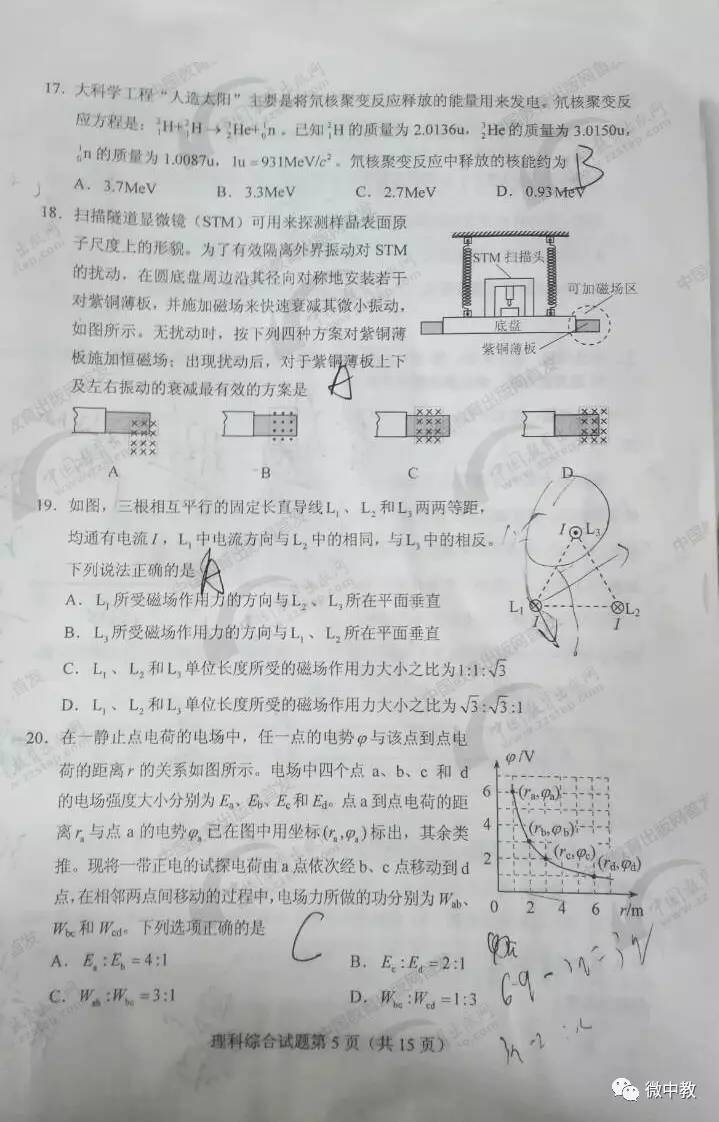 17. 大科学工程“人造太阳”主要是将氘核聚变反应释放的能量用来发电。氘核聚变反
应方程是：²₁H+²₁H→³₂He+¹₀n。已知²₁H的质量为2.0136u，³₂He的质量为3.0150u，
¹₀n的质量为1.0087u，1u＝931MeV/c²。氘核聚变反应中释放的核能约为 B
A. 3.7MeV B. 3.3MeV C. 2.7MeV D. 0.93MeV
18. 扫描隧道显微镜（STM）可用来探测样品表面原
子尺度上的形貌。为了有效隔离外界振动对STM
的扰动，在圆底盘周边沿其径向对称地安装若干
对紫铜薄板，并施加磁场来快速衰减其微小振动，
如图所示。无扰动时，按下列四种方案对紫铜薄
板施加恒磁场；出现扰动后，对于紫铜薄板上下
及左右振动的衰减最有效的方案是 A
STM扫描头
可加磁场区
底盘
紫铜薄板
A B C D
19. 如图，三根相互平行的固定长直导线L₁、L₂和L₃两两等距，
均通有电流I，L₁中电流方向与L₂中的相同，与L₃中的相反。
下列说法正确的是 A
A. L₁所受磁场作用力的方向与L₂、L₃所在平面垂直
B. L₃所受磁场作用力的方向与L₁、L₂所在平面垂直
C. L₁、L₂和L₃单位长度所受的磁场作用力大小之比为1:1:√3
D. L₁、L₂和L₃单位长度所受的磁场作用力大小之比为√3:√3:1
I L₃
L₁ L₂
I I
20. 在一静止点电荷的电场中，任一点的电势φ与该点到点电
荷的距离r的关系如图所示。电场中四个点a、b、c和d
的电场强度大小分别为Eₐ、E_b、E_c和E_d。点a到点电荷的距
离rₐ与点a的电势φₐ已在图中用坐标(rₐ,φₐ)标出，其余类
推。现将一带正电的试探电荷由a点依次经b、c点移动到d
点，在相邻两点间移动的过程中，电场力所做的功分别为W_ab、
W_bc和W_cd。下列选项正确的是 C
A. Eₐ:E_b=4:1 B. E_c:E_d=2:1
C. W_ab:W_bc=3:1 D. W_bc:W_cd=1:3
φ/V
6 (rₐ,φₐ)
4 (r_b,φ_b)
2 (r_c,φ_c) (r_d,φ_d)
0 2 4 6 r/m
理科综合试题第5页（共15页）
微中教